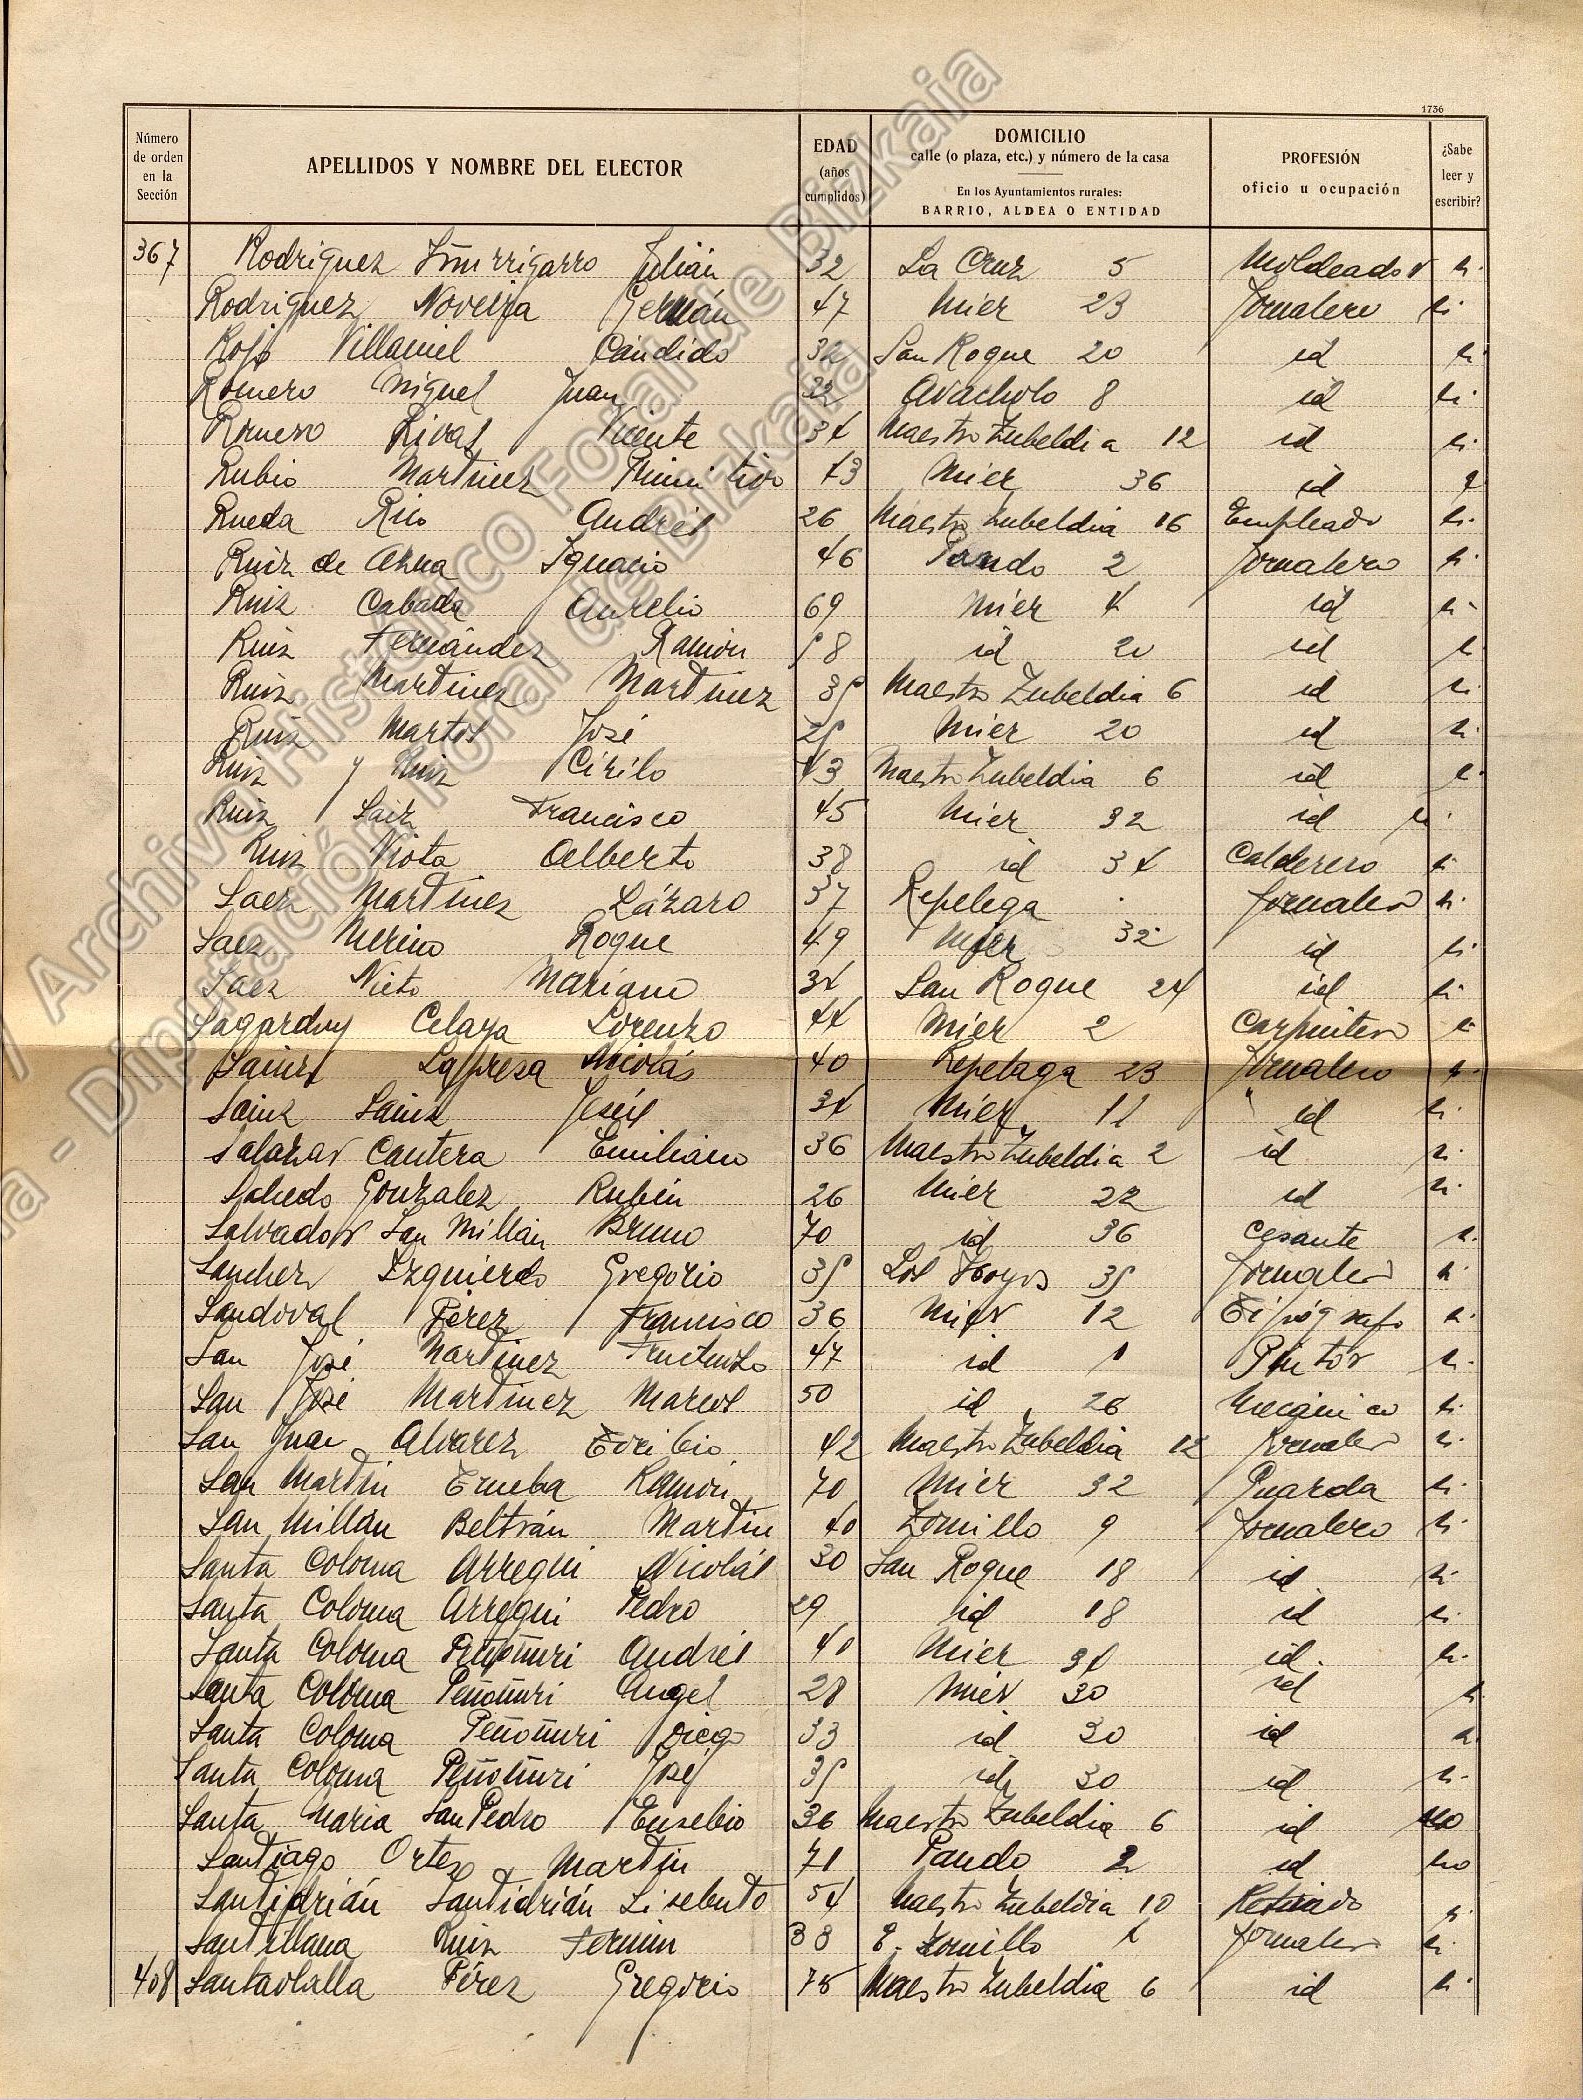 1736
Número de orden en la Sección | APELLIDOS Y NOMBRE DEL ELECTOR | EDAD (años cumplidos) | DOMICILIO calle (o plaza, etc.) y número de la casa En los Ayuntamientos rurales: BARRIO, ALDEA O ENTIDAD | PROFESIÓN oficio u ocupación | ¿Sabe leer y escribir?
367 Rodriguez Julián 32 La Cruz 5 Moldeador si
Rodriguez Germán 47 Mier 23 Jornalero si
Rojo Villamiel Cándido 32 San Roque 20 id si
Romero Miguel Juan 32 Avacholo 8 id si
Romero Rivas Vicente 34 Maestro Zubeldia 12 id si
Rubio Martinez Primitivo 43 Mier 36 id
Rueda Rico Andrés 26 Maestro Zubeldia 16 Empleado si
Ruiz de Ignacio 46 Pando 2 Jornalero si
Ruiz Cabada Aurelio 69 Mier 4 id si
Ruiz Fernández Ramón 58 id 20 id si
Ruiz Martinez Martinez 35 Maestro Zubeldia 6 id si
Ruiz Martos José 25 Mier 20 id si
Ruiz y Ruiz Cirilo 43 Maestro Zubeldia 6 id si
Ruiz Saiz Francisco 45 Mier 32 id si
Ruiz Viota Alberto 38 id 34 Calderero si
Saez Martinez Lázaro 37 Repelega Jornalero si
Saez Merino Roque 49 Mier 32 id si
Saez Nieto Mariano 34 San Roque 24 id si
Sagarduy Celaya Lorenzo 44 Mier 2 Carpintero si
Sainz Lapresa Nicolás 40 Repelaga 23 Jornalero
Sainz Sainz Jesús 34 Mier 11 id si
Salazar Cantera Emiliano 36 Maestro Zubeldia 2 id si
Salcedo Gonzalez Rubén 26 Mier 22 id si
Salvador San Millán Bruno 70 id 36 Cesante si
Sanchez Izquierdo Gregorio 35 Los Hoyos 35 Jornalero si
Sandoval Pérez Francisco 36 Mier 12 Tipógrafo si
San José Martinez Fructuoso 47 id 1 Pintor si
San José Martinez Marcos 50 id 26 Mecánico si
San Juan Alvarez Toribio 42 Maestro Zubeldia 12 Jornalero si
San Martin Trueba Ramón 70 Mier 32 Guarda si
San Millán Beltrán Martin 40 Zomillo 9 Jornalero si
Santa Coloma Arregui Nicolás 30 San Roque 18 id si
Santa Coloma Arregui Pedro 29 id 18 id si
Santa Coloma Peñoñuri Andrés 40 Mier 34 id si
Santa Coloma Peñoñuri Angel 28 Mier 30 id si
Santa Coloma Peñoñuri Diego 33 id 30 id si
Santa Coloma Peñoñuri José 35 id 30 id si
Santa Maria San Pedro Eusebio 36 Maestro Zubeldia 6 id no
Santiago Martin 71 Pando 2 id no
Santidrián Santidrián 54 Maestro Zubeldia 10 Retirado si
Santillana Ruiz Fermin 38 Zomillo Jornalero si
408 Santaolalla Pérez Gregorio 75 Maestro Zubeldia 6 id si
Archivo Histórico Foral de Bizkaia
Diputación Foral de Bizkaia